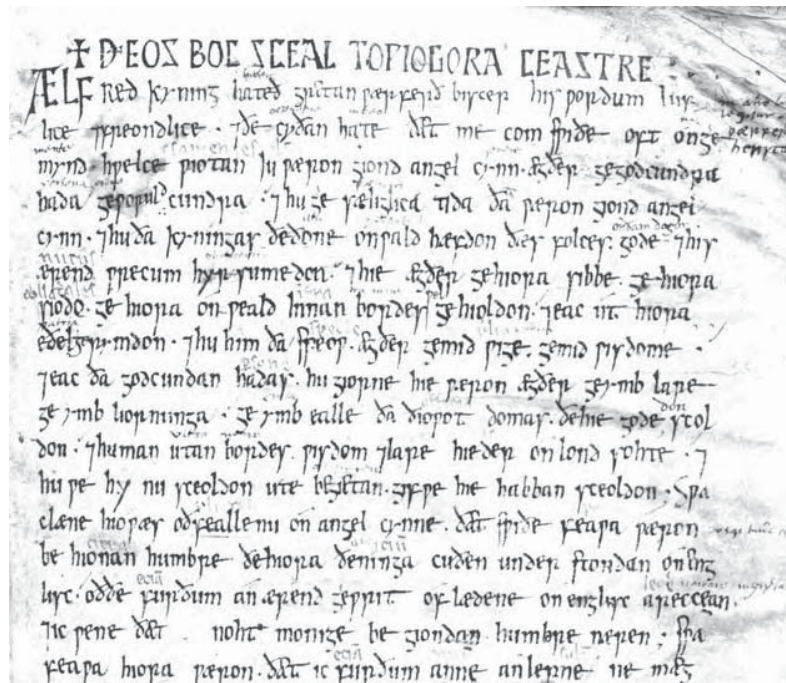 ✝ ÐEOS BOC SCEAL TO ǷIOGORA CEASTRE
ÆLFRED kyning hateð gretan ƿærferð biscep his ƿordum luf
lice ⁊ freondlice · ⁊ðe cyðan hate ðæt me com suiðe oft onge
mynd hƿelce ƿiotan iu ƿæron giond angel cynn · ægðer ge godcundra
hada ge ƿoruld cundra · ⁊hu gesæliglica tida ða ƿæron giond angel
cynn · ⁊hu ða kyningas ðe ðone onƿald hæfdon ðæs folces · gode ⁊his
ærend ƿrecum hyrsumedon · ⁊hie ægðer ge hiora sibbe · ge hiora
siodo · ge hiora onƿeald innan bordes gehioldon · ⁊eac ut hiora
eðel gerymdon · ⁊hu him ða speoƿ · ægðer ge mid ƿige · ge mid ƿisdome ·
⁊eac ða godcundan hadas · hu giorne hie ƿæron ægðer ge ymb lare
ge ymb liornunga · ge ymb ealle ða ðioƿot domas · ðe hie gode scol
don · ⁊hu man utan bordes · ƿisdom ⁊lare hieder on lond sohte · ⁊
hu ƿe hy nu sceoldon ute begietan · gif ƿe hie habban sceoldon · Sƿa
clæne hio ƿæs oðfeallenu on angel cynne · ðæt suiðe feaƿa ƿæron
be hionan humbre ðe hiora ðeninga cuðen understondan on eng
lisc · oððe furðum an ærend geƿrit of lædene on englisc areccean ·
⁊ic ƿene ðæt noht monige be giondan humbre næren ; sƿa
feaƿa hiora ƿæron · ðæt ic furðum anne anlepne ne mæg